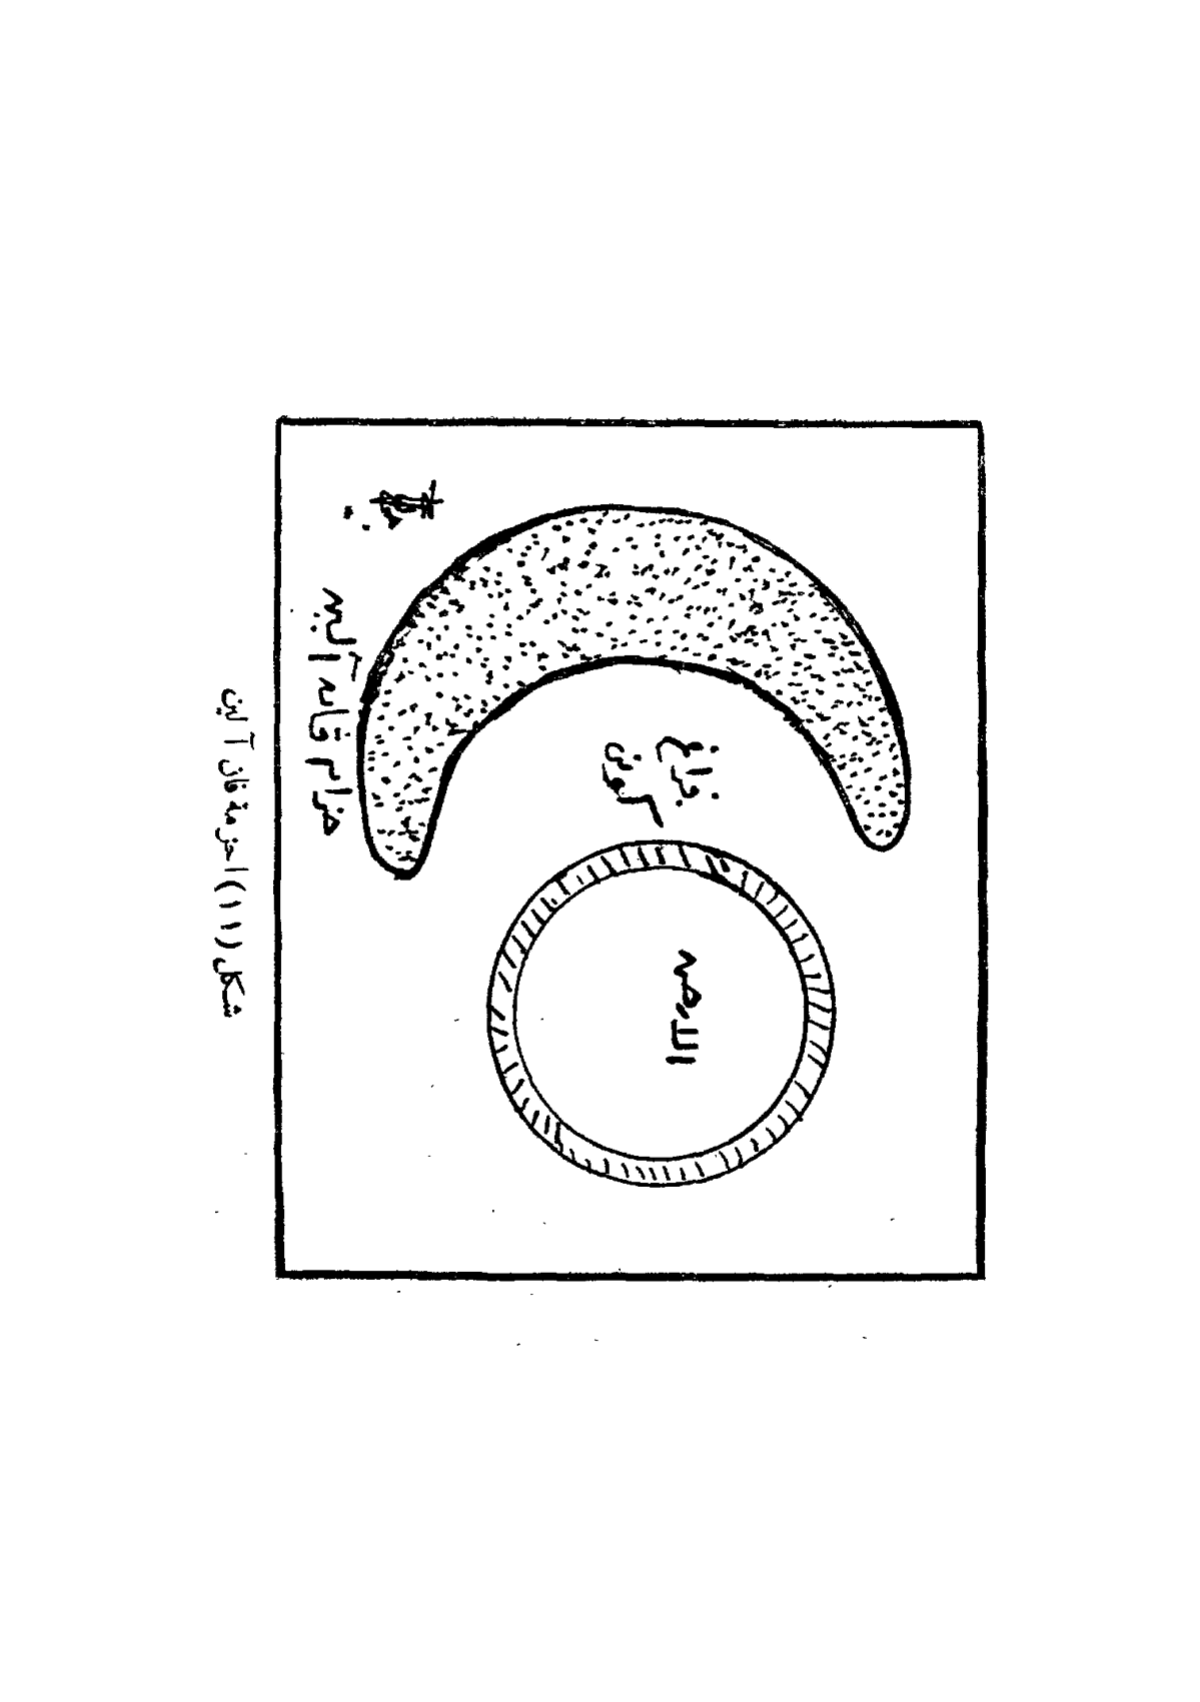 فراغ
كونى
الأرض
حزام ڤان آلين
شكل (١١) احزمة ڤان آلين